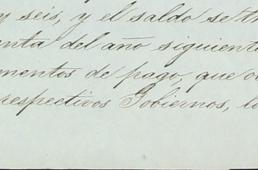 y seis, y el saldo se
enta del año siguiente
mentos de pago, que
respectivos Gobiernos,